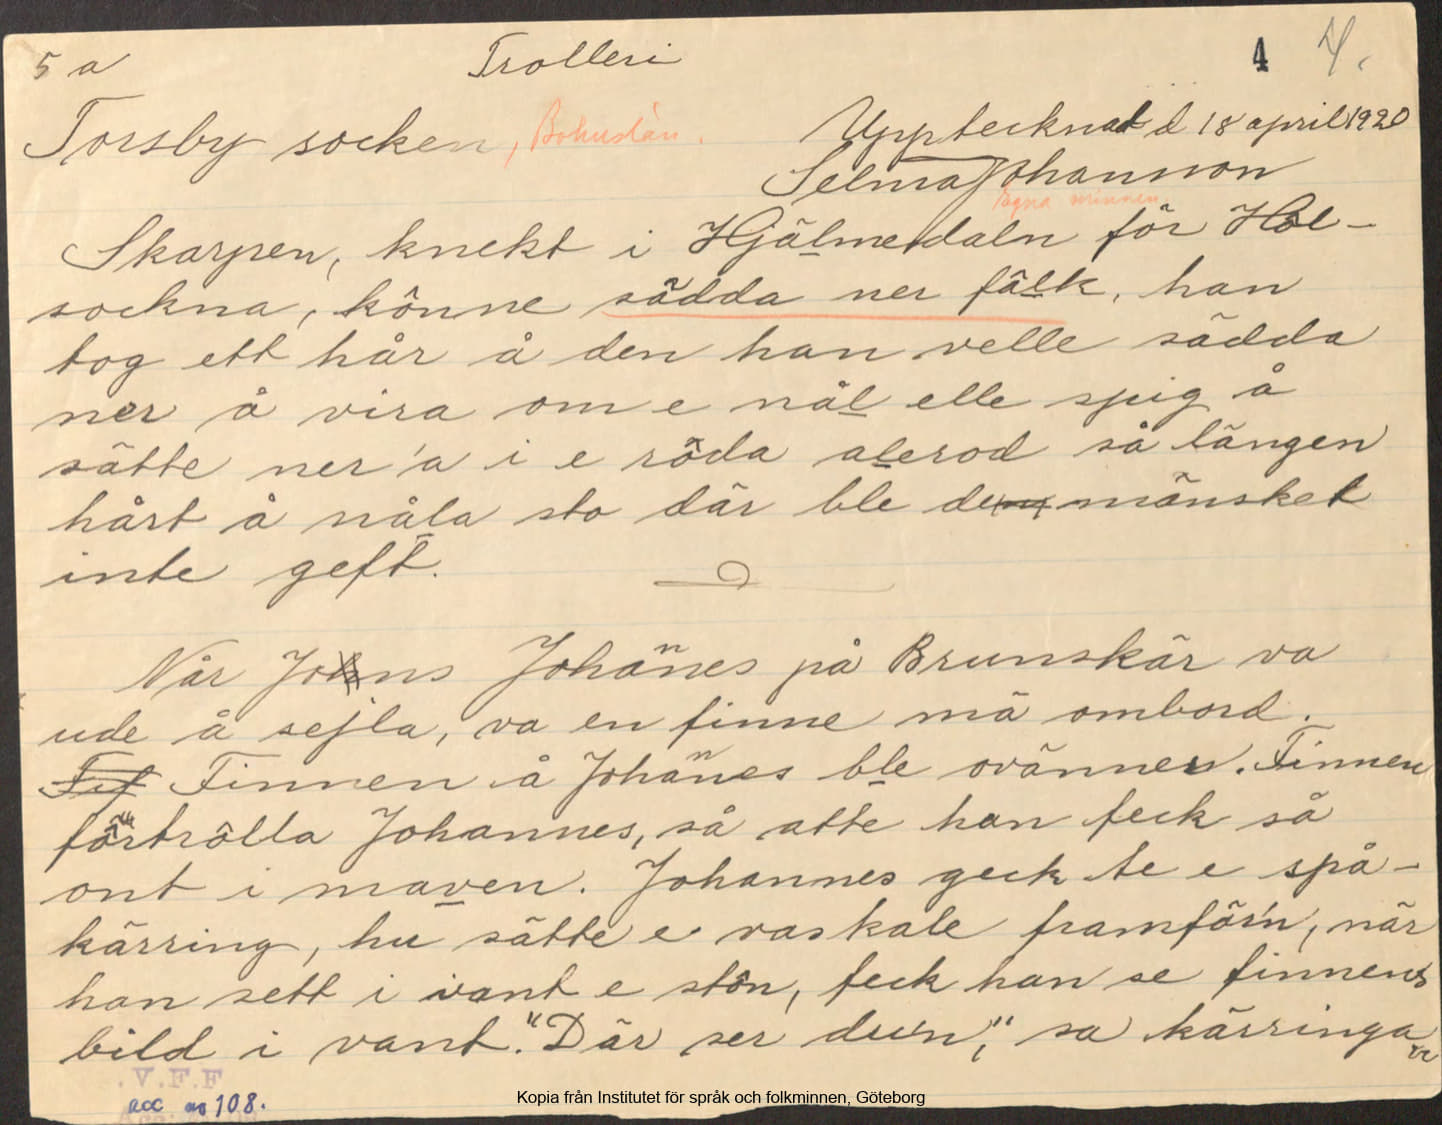 5 a Trolleri 4 4.
Torsby socken, Bohuslän. Upptecknat d 18 april 1920
Selma Johansson
Egna minnen
Skarpen, knekt i Hjälmedaln för Hol-
sockna, könne sädda ner fålk, han
tog ett hår å den han velle sädda
ner å vira om e nål elle spig å
sätte ner'a i e röda alerod så längen
hårt å nåla sto där ble den mänsket
inte geft.
Når Johns Johannes på Brunskär va
ude å sejla, va en finne mä ombord.
Fif Finnen å Johannes ble ovänner. Finnen
förtrölla Johannes, så atte han feck så
ont i maven. Johannes geck te e spå-
kärring, hu sätte e vaskale framför'n, når
han sett i vant e stön, feck han se finnens
bild i vant. "Där ser du'n," sa kärringa
.V.F.F
acc no 108.
Kopia från Institutet för språk och folkminnen, Göteborg